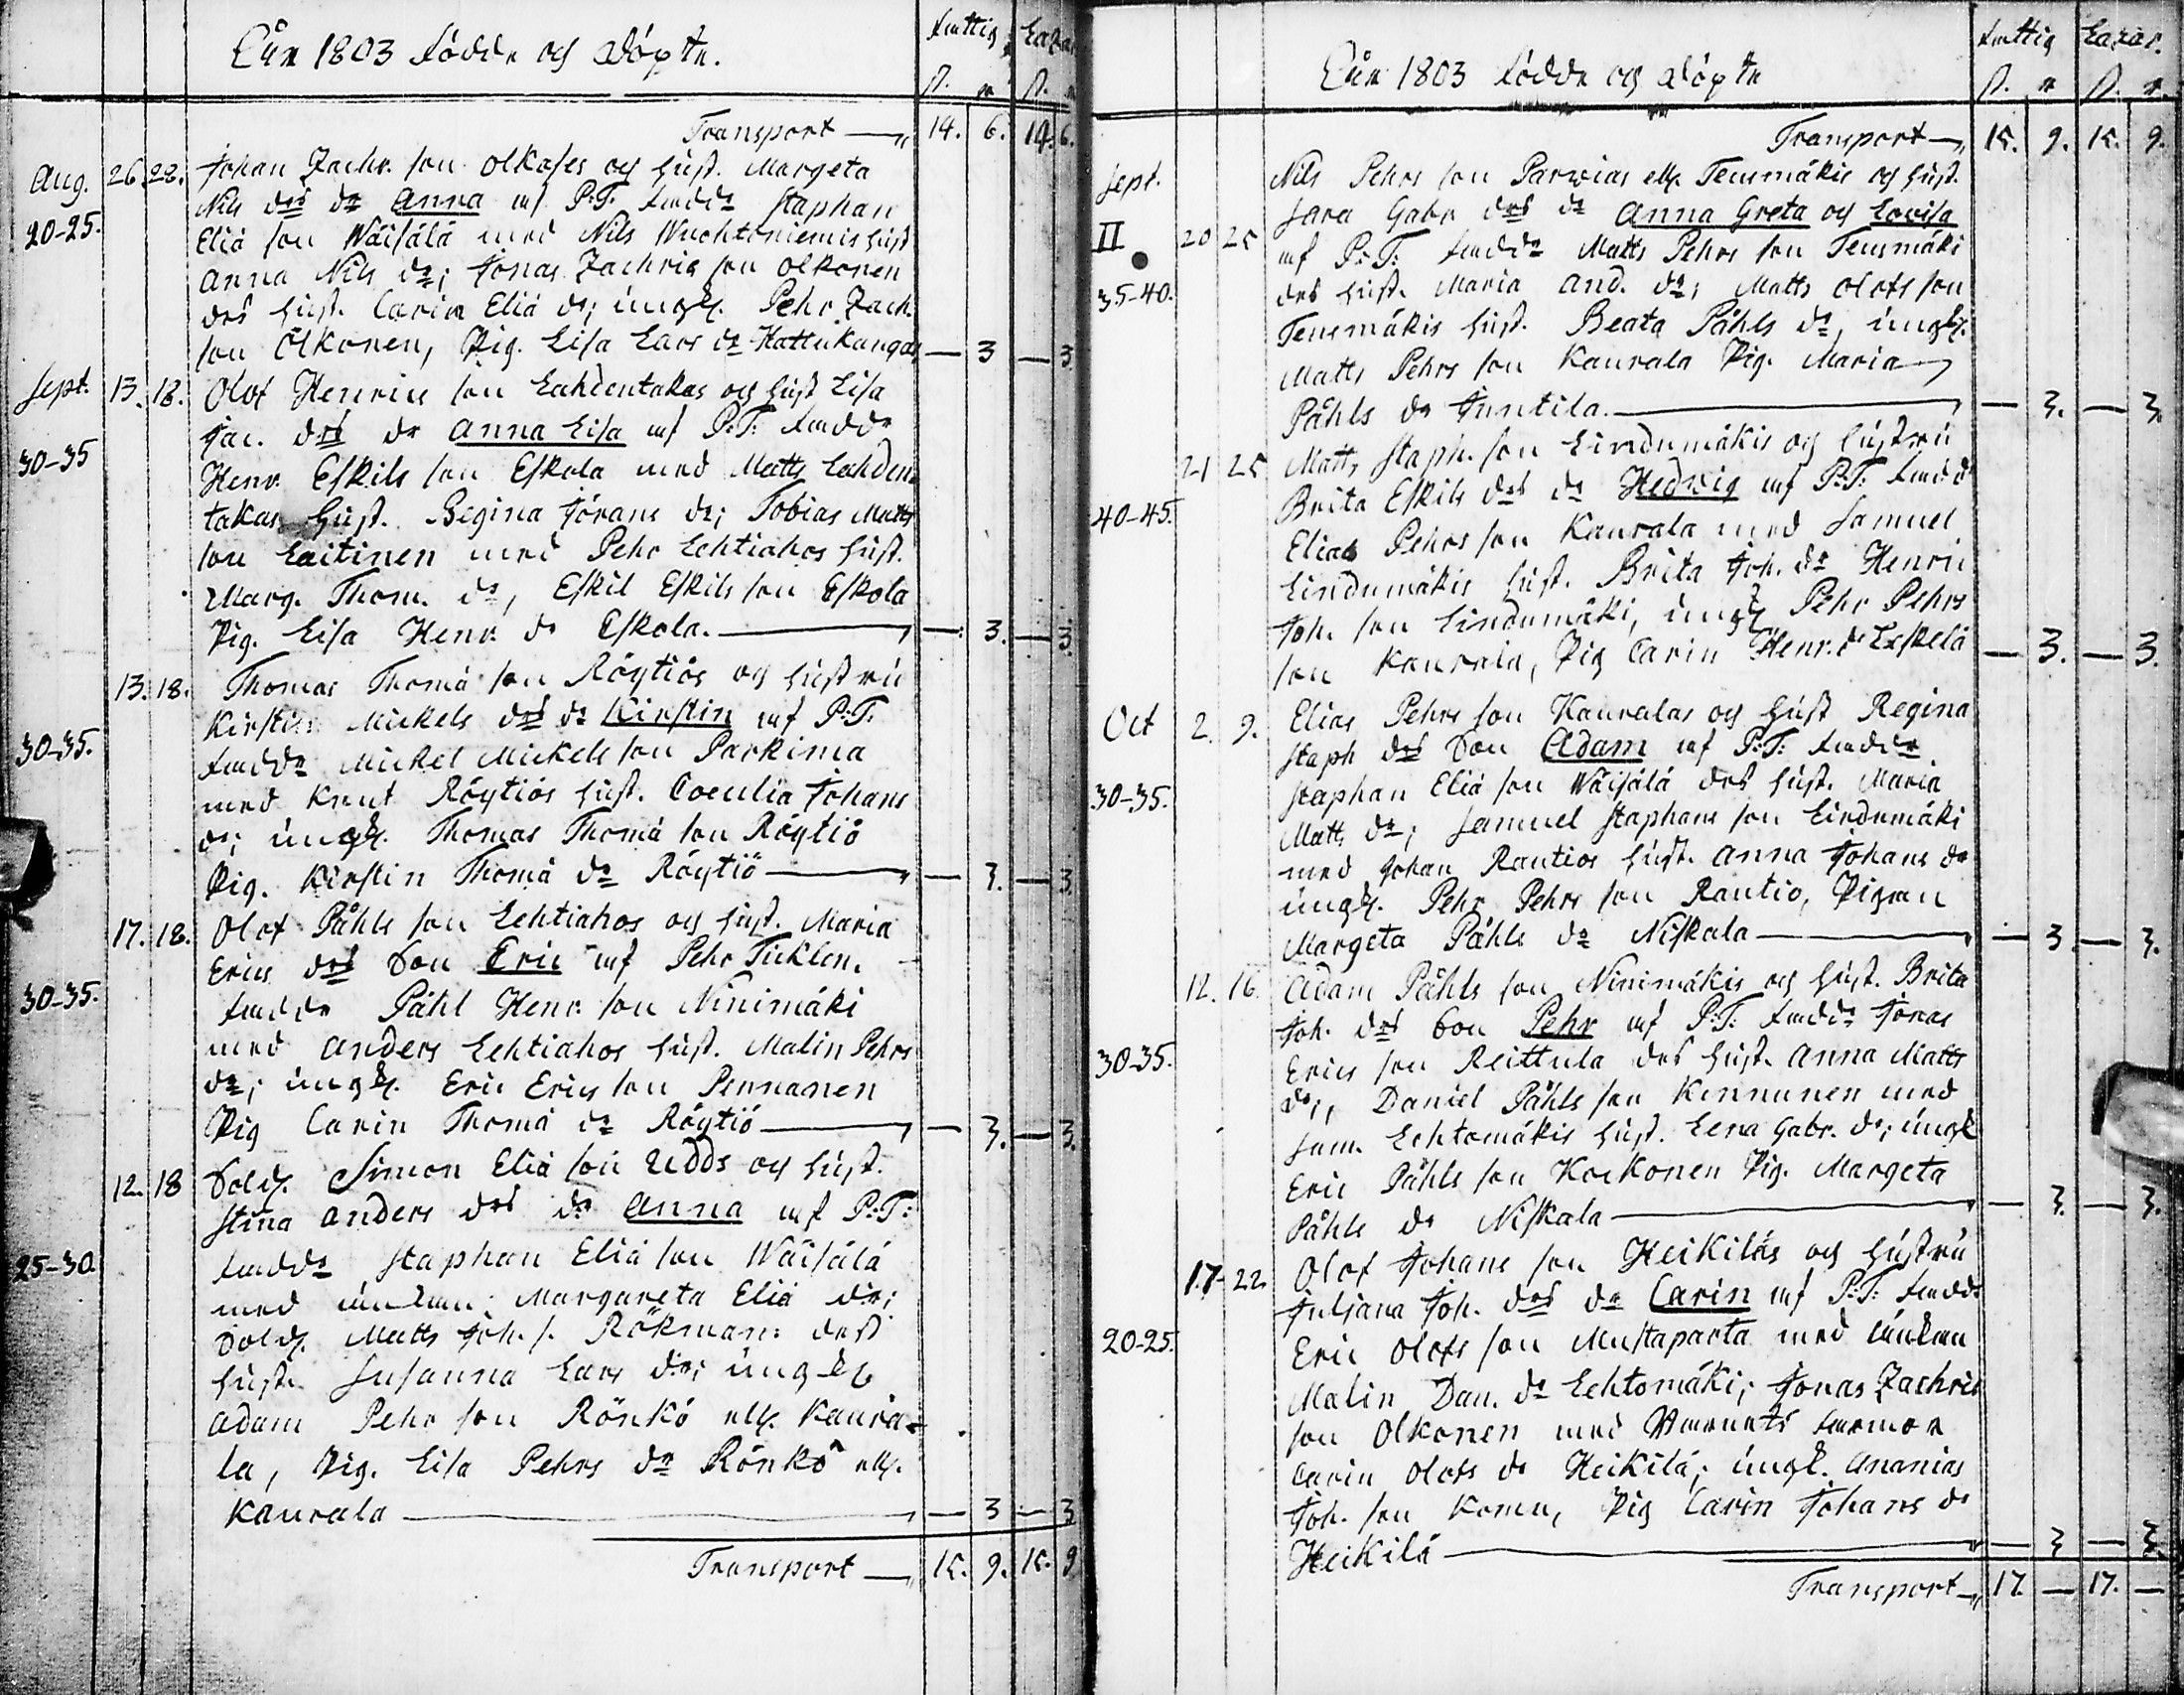 Åhr 1803 födde och döpte.
Fattig Lazar
ß. r ß. r
Transport — 14. 6. 14. 6.
Aug. 26. 28. Johan Zachr. son Olkoses och hust. Margeta
Nils des dr Anna af P:T: fadde Staphan
20-25. Eliä son Wäisälä med Nils Wuohtoniemis hust
Anna Nils dr; Jonas Zachriæ son Olkonen
des hust. Carin Eliä dr; ungk. Pehr Zach.
son Olkonen, Pig. Lisa Lars dr Hattukangas — 3 — 3
Sept. 13. 18. Olof Henrics son Lahdentakas och hust Lisa
Jac. des dr Anna Lisa af P:T: fadde
30-35 Henr. Eskils son Eskola med Matts Lahden-
takas hust. Regina Jörans dr; Tobias Matts
son Laitinen med Pehr Lehtiahos hust.
Marg. Thom. dr, Eskil Eskils son Eskola
Pig. Lisa Henr. dr Eskola. — 3. — 3.
13. 18. Thomas Thomä son Röytiös och hustru
Kirstin Mickels des dr Kirstin af P:T:
30-35. fadde Mickel Mickels son Parkima
med Knut Röytiös hust. Coeculia Johans
dr; ungk. Thomas Thomä son Röytiö
Pig. Kirstin Thomä dr Röytiö — 3. — 3
17. 18. Olof Påhls son Lehtiahos och hust. Maria
Erics des Son Eric af Pehr Ticklen.
30-35. fadde Påhl Henr. son Ninimäki
med Anders Lehtiahos hust. Malin Pehrs
dr; ungk. Eric Erics son Pennanen
Pig Carin Thomä dr Röytiö — 3. — 3.
12. 18 Sold. Simon Eliä son Udds och hust.
Stina Anders des dr Anna af P:T:
25-30. fadde Staphan Eliä son Wäisälä
med änkan Margareta Eliä dr;
Sold. Matts Joh. s. Rökman dess
hust. Susanna Lars dr; ungk
Adam Pehr son Rönkö ell. Kaura-
la, Pig. Lisa Pehrs dr Rönkö ell.
Kaurala — 3 — 3
Transport — 15. 9. 15. 9
Åhr 1803 födde och döpte
Fattig Lazar.
ß. r ß. r.
Transport — 15. 9. 15. 9.
Sept. Nils Pehrs son Parwias ell. Tensmäkis och hust.
Sara Gabr des dr Anna Greta och Lovisa
II 20 25 af P:T: fadde Matts Pehrs son Tensmäki
35-40. des hust. Maria And. dr; Matts Olofs son
Tensmäkis hust. Beata Påhls dr, ungk.
Matts Pehrs son Kaurala Pig. Maria
Påhls dr Juntila. — 3. — 3.
21 25 Matts Staph. son Lindumäkis och hustru
40-45. Brita Eskils des dr Hedwig af P:T: fadde
Elias Pehrs son Kaurala med Samuel
Lindumäkis hust. Brita Joh. dr Henric
Joh. son Lindumäki, ungk Pehr Pehrs
son Kaurala, Pig Carin Henr. dr Leskelä — 3. — 3.
Oct 2. 9. Elias Pehrs son Kauralas och hust Regina
Staph des Son Adam af P:T: fadde
30-35. Staphan Eliä son Wäisälä des hust. Maria
Matts dr; Samuel Staphans son Lindumäki
med Johan Rautios hust. Anna Johans dr
ungk. Pehr Pehrs son Rautio, Pigan
Margeta Påhls dr Niskala — 3 — 3.
12. 16. Adam Påhls son Ninimäkis och hust. Brita
Joh. des Son Pehr af P:T: fadde Jonas
30-35. Erics son Reittula des hust. Anna Matts
dr;, Daniel Påhls son Kinnunen med
Sam. Lehtomäkis hust. Lena Gabr. dr; ungk
Eric Påhls son Korkonen Pig. Margeta
Påhls dr Niskala — 3. — 3.
17- 22. Olof Johans son Heikiläs och hustru
Juliana Joh. des dr Carin af P:T: fadde
20-25. Eric Olofs son Mustaparta med änkan
Malin Dan. dr Lehtomäki; Jonas Zachris
son Olkonen med Barnets farmor
Carin Olofs dr Heikilä; ungk. Ananias
Joh. son Komu, Pig Carin Johans dr
Heikilä — 3 — 3.
Transport — 17. — 17. —